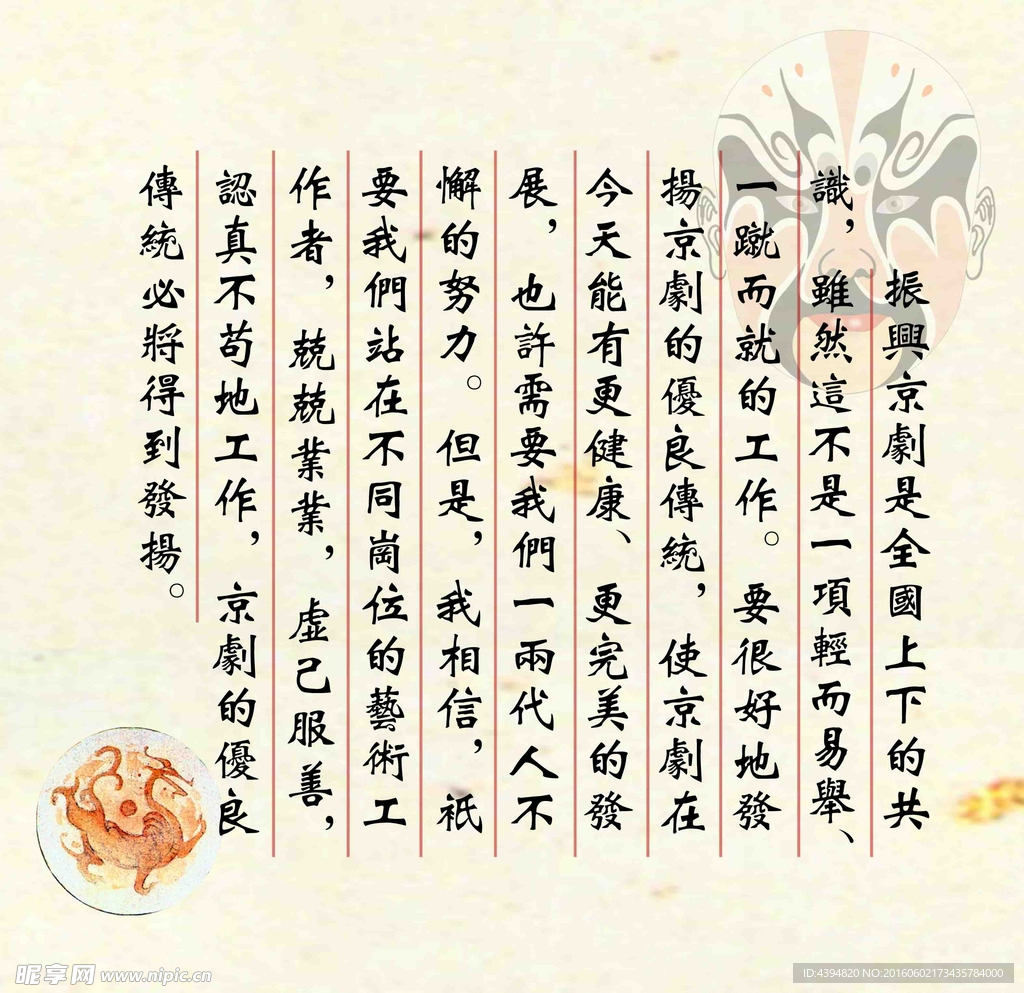 振興京劇是全國上下的共
識，雖然這不是一項輕而易舉、
一蹴而就的工作。要很好地發
揚京劇的優良傳統，使京劇在
今天能有更健康、更完美的發
展，也許需要我們一兩代人不
懈的努力。但是，我相信，衹
要我們站在不同崗位的藝術工
作者，兢兢業業，虛己服善，
認真不苟地工作，京劇的優良
傳統必將得到發揚。
昵享网 www.nipic.cn
ID:4394820 NO:20160602173435784000